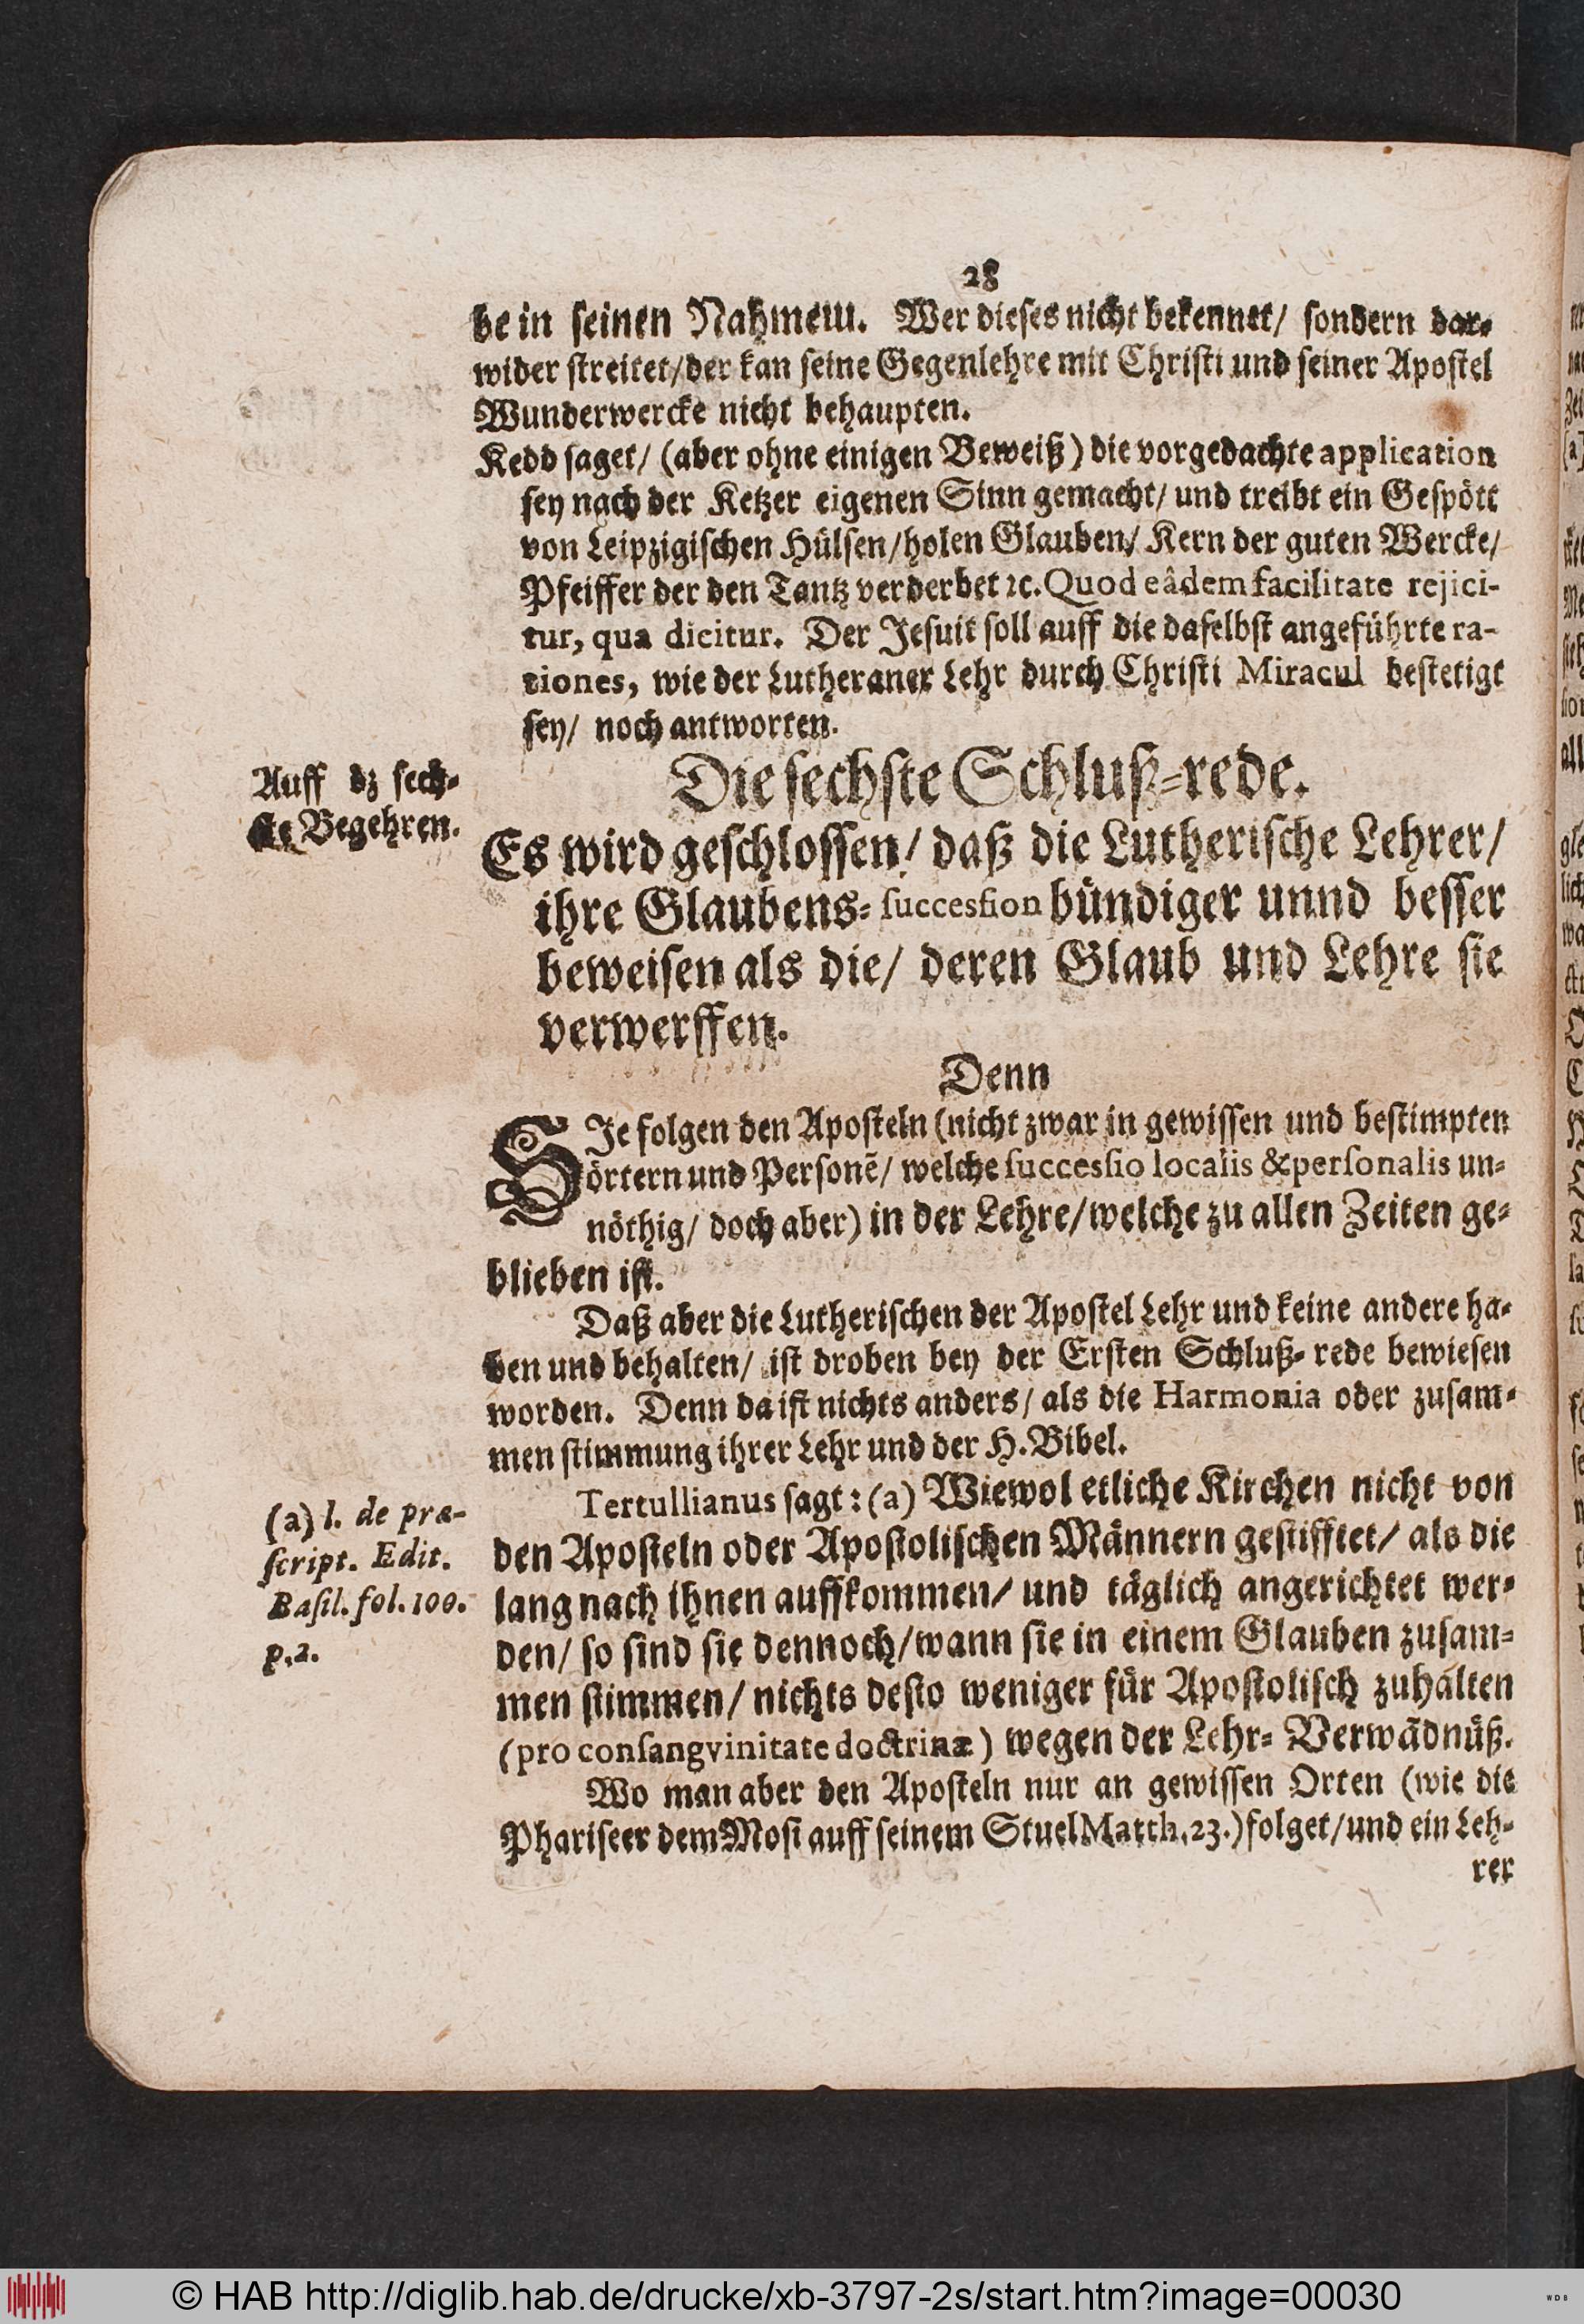 28
be in seinen Nahmem. Wer dieses nicht bekennet/ sondern dar-
wider streitet/der kan seine Gegenlehre mit Christi und seiner Apostel
Wunderwercke nicht behaupten.
Kedd saget/ (aber ohne einigen Beweiß) die vorgedachte application
sey nach der Ketzer eigenen Sinn gemacht/ und treibt ein Gespött
von Leipzigischen Hülsen/holen Glauben/ Kern der guten Wercke/
Pfeiffer der den Tantz verderbet ꝛc. Quod eâdem facilitate rejici-
tur, qua dicitur. Der Jesuit soll auff die daselbst angeführte ra-
tiones, wie der Lutheraner Lehr durch Christi Miracul bestetigt
sey/ noch antworten.
Auff dz sech-
ste Begehren.
Die sechste Schluß-rede.
Es wird geschlossen/ daß die Lutherische Lehrer/
ihre Glaubens-succession bündiger unnd besser
beweisen als die/ deren Glaub und Lehre sie
verwerffen.
Denn
SIe folgen den Aposteln (nicht zwar in gewissen und bestimpten
örtern und Personẽ/ welche successio localis & personalis un-
nöthig/ doch aber) in der Lehre/welche zu allen Zeiten ge-
blieben ist.
Daß aber die Lutherischen der Apostel Lehr und keine andere ha-
ben und behalten/ ist droben bey der Ersten Schluß-rede bewiesen
worden. Denn da ist nichts anders/ als die Harmonia oder zusam-
men stimmung ihrer Lehr und der H. Bibel.
Tertullianus sagt: (a) Wiewol etliche Kirchen nicht von
den Aposteln oder Apostolischen Männern gestifftet/ als die
lang nach ihnen auffkommen/ und täglich angerichtet wer-
den/ so sind sie dennoch/wann sie in einem Glauben zusam-
men stimmen/ nichts desto weniger für Apostolisch zuhalten
(pro consangvinitate doctrinæ) wegen der Lehr-Verwãdnüß.
(a) l. de præ-
script. Edit.
Basil. fol. 100.
p. 2.
Wo man aber den Aposteln nur an gewissen Orten (wie die
Phariseer dem Mosi auff seinem Stuel Matth. 23.) folget/und ein Leh-
rer
© HAB http://diglib.hab.de/drucke/xb-3797-2s/start.htm?image=00030